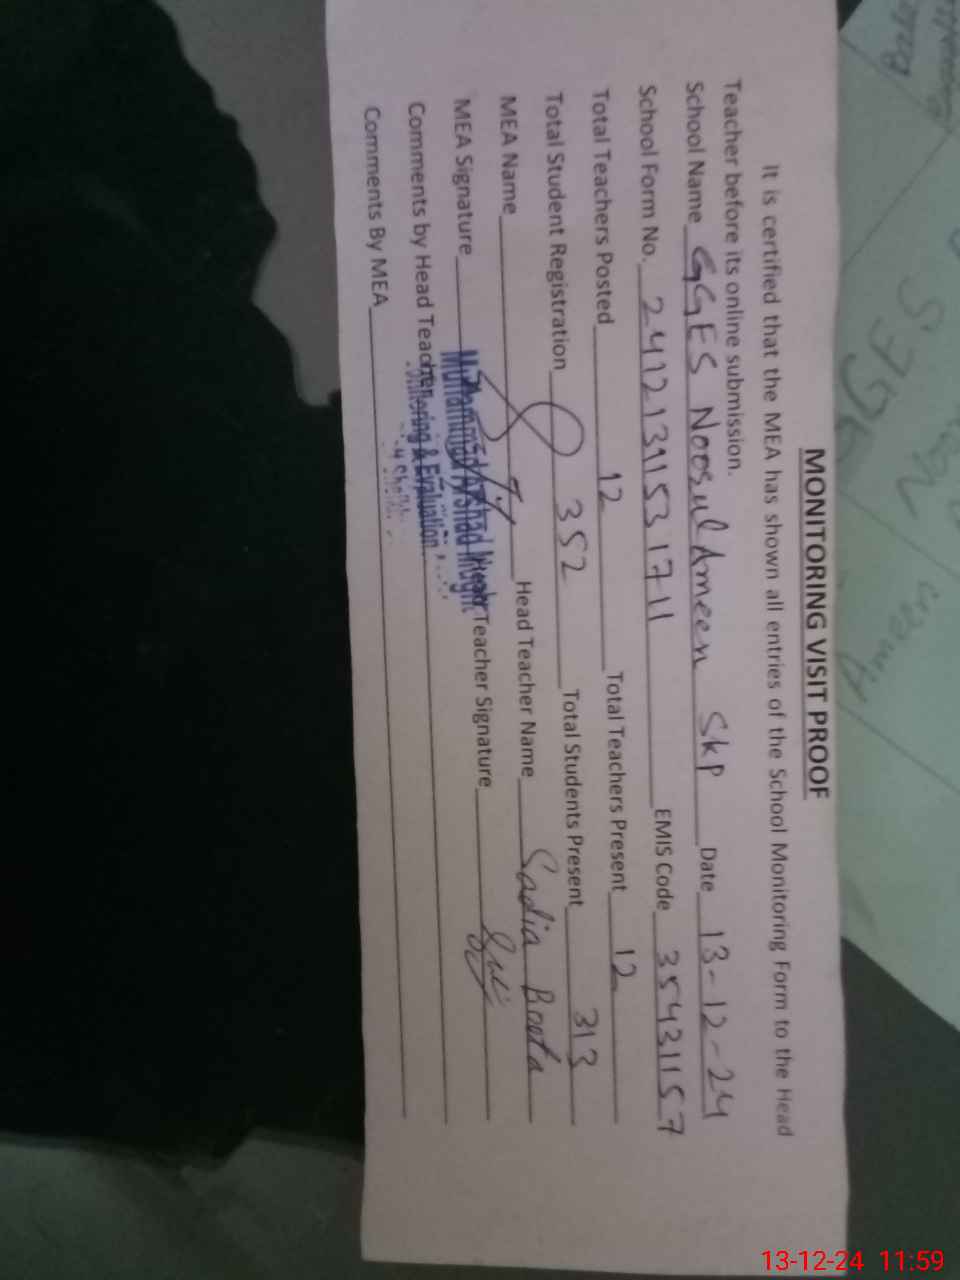 MONITORING VISIT PROOF
It is certified that the MEA has shown all entries of the School Monitoring Form to the Head
Teacher before its online submission.
School Name GGES Noosul Ameen Skp Date 13-12-24
School Form No. 2412131153 1711 EMIS Code 35431157
Total Teachers Posted 12 Total Teachers Present 12
Total Student Registration 352 Total Students Present 313
MEA Name Head Teacher Name Sadia Boota
MEA Signature Teacher Signature
Muhammad Arshad
Comments by Head Teacher
Monitoring & Evaluation
Comments By MEA
GGES
Ameen
13-12-24 11:59